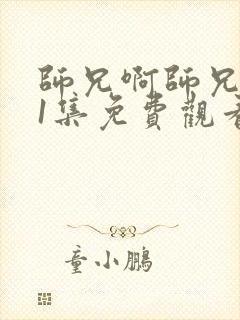 師兄啊師兄
1集免費觀看
童小鵬